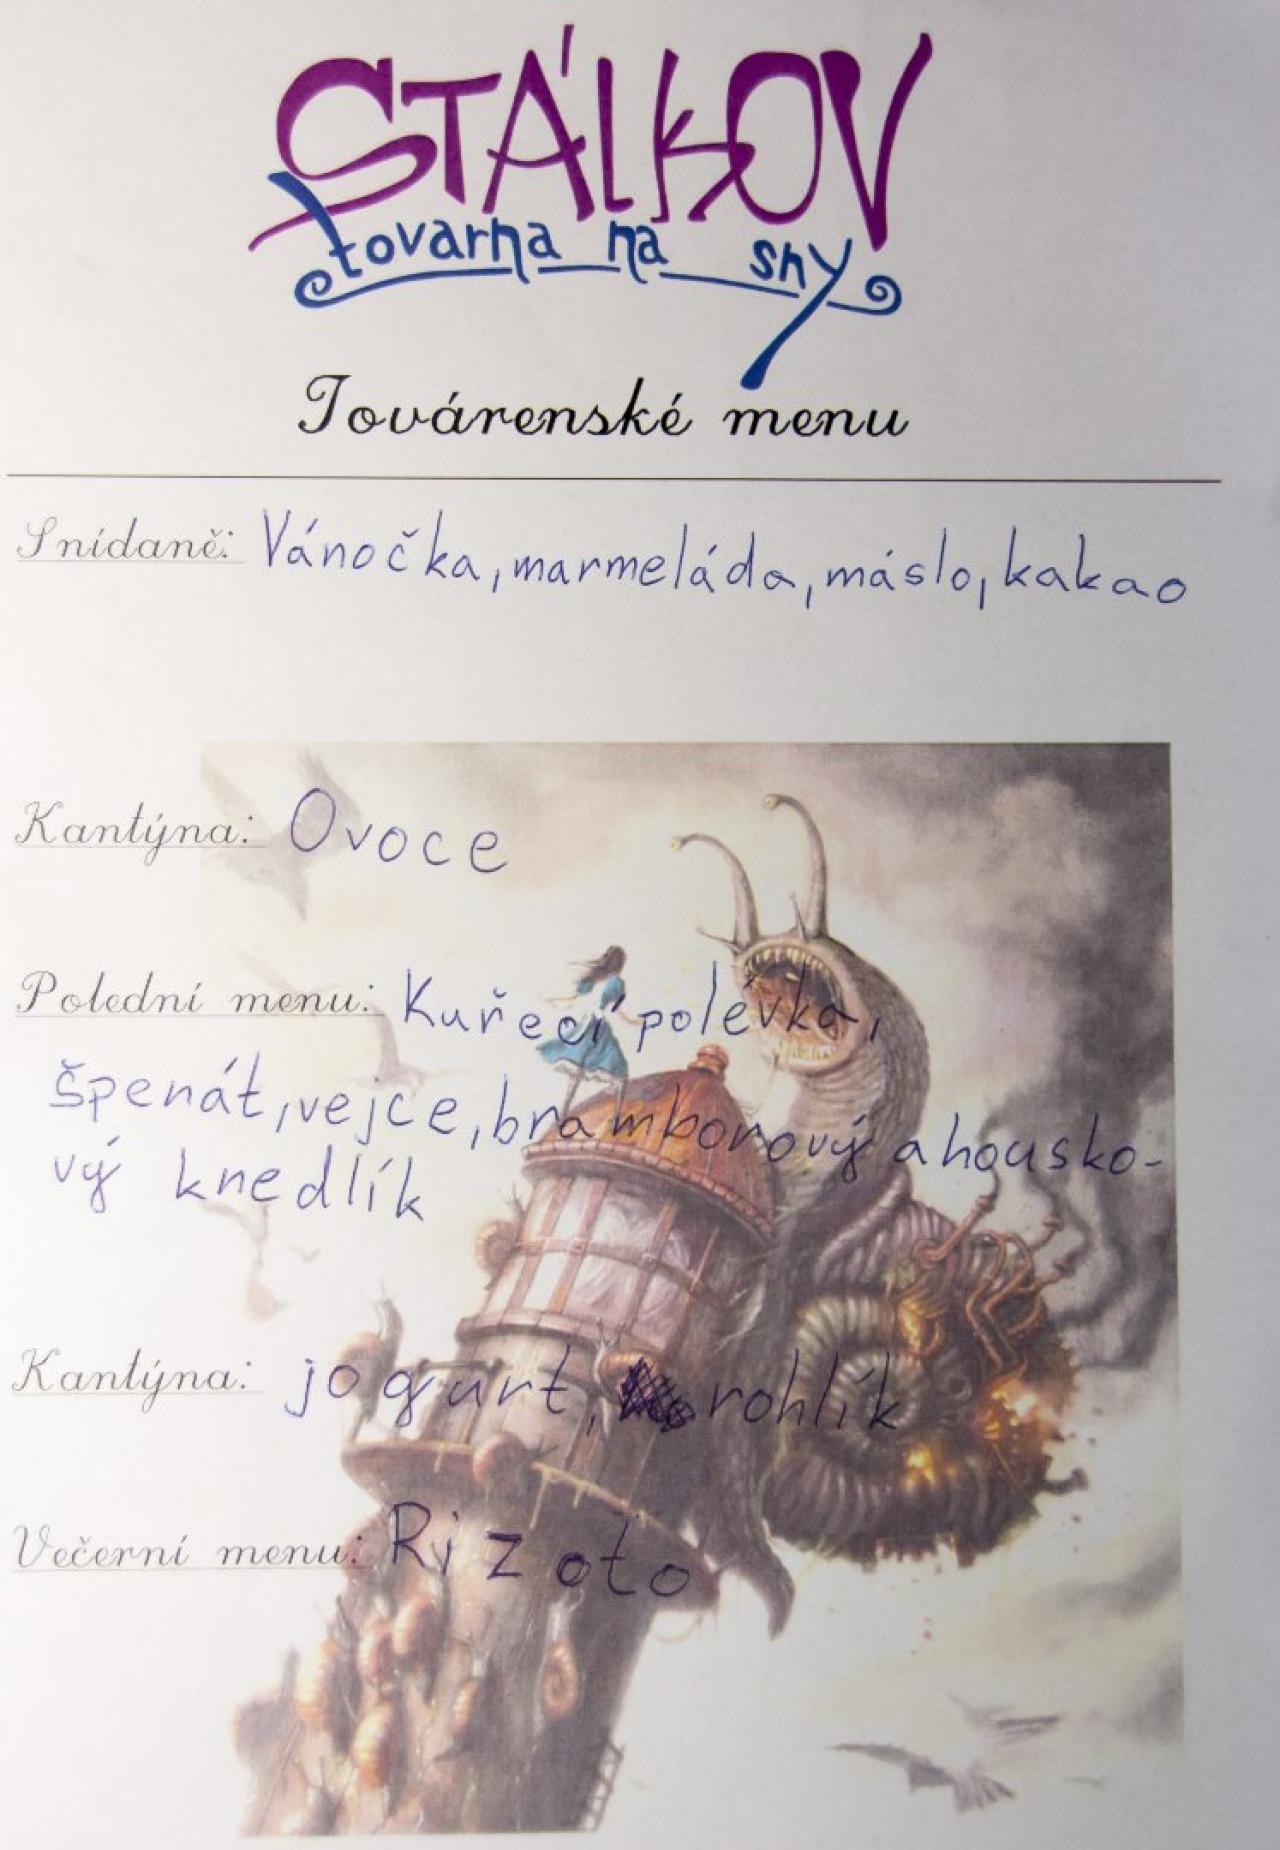 STÁLKOV
tovarna na sny
Továrenské menu
Snídaně: Vánočka, marmeláda, máslo, kakao
Kantýna: Ovoce
Polední menu: Kuřecí polévka,
špenát, vejce, bramborový a housko-
vý knedlík
Kantýna: jogurt, rohlík
Večerní menu: Rizoto